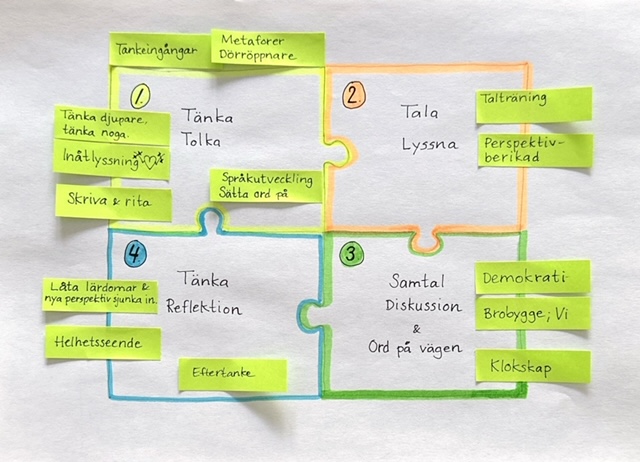 Tankeingångar
Metaforer
Dörröppnare
1.
Tänka
Tolka
Tänka djupare,
tänka noga.
Inåtlyssning
Skriva & rita
Språkutveckling
Sätta ord på
2.
Tala
Lyssna
Talträning
Perspektiv-
berikad
4
Tänka
Reflektion
Låta lärdomar &
nya perspektiv sjunka in.
Helhetsseende
Eftertanke
3
Samtal
Diskussion
&
Ord på vägen
Demokrati
Brobygge; Vi
Klokskap